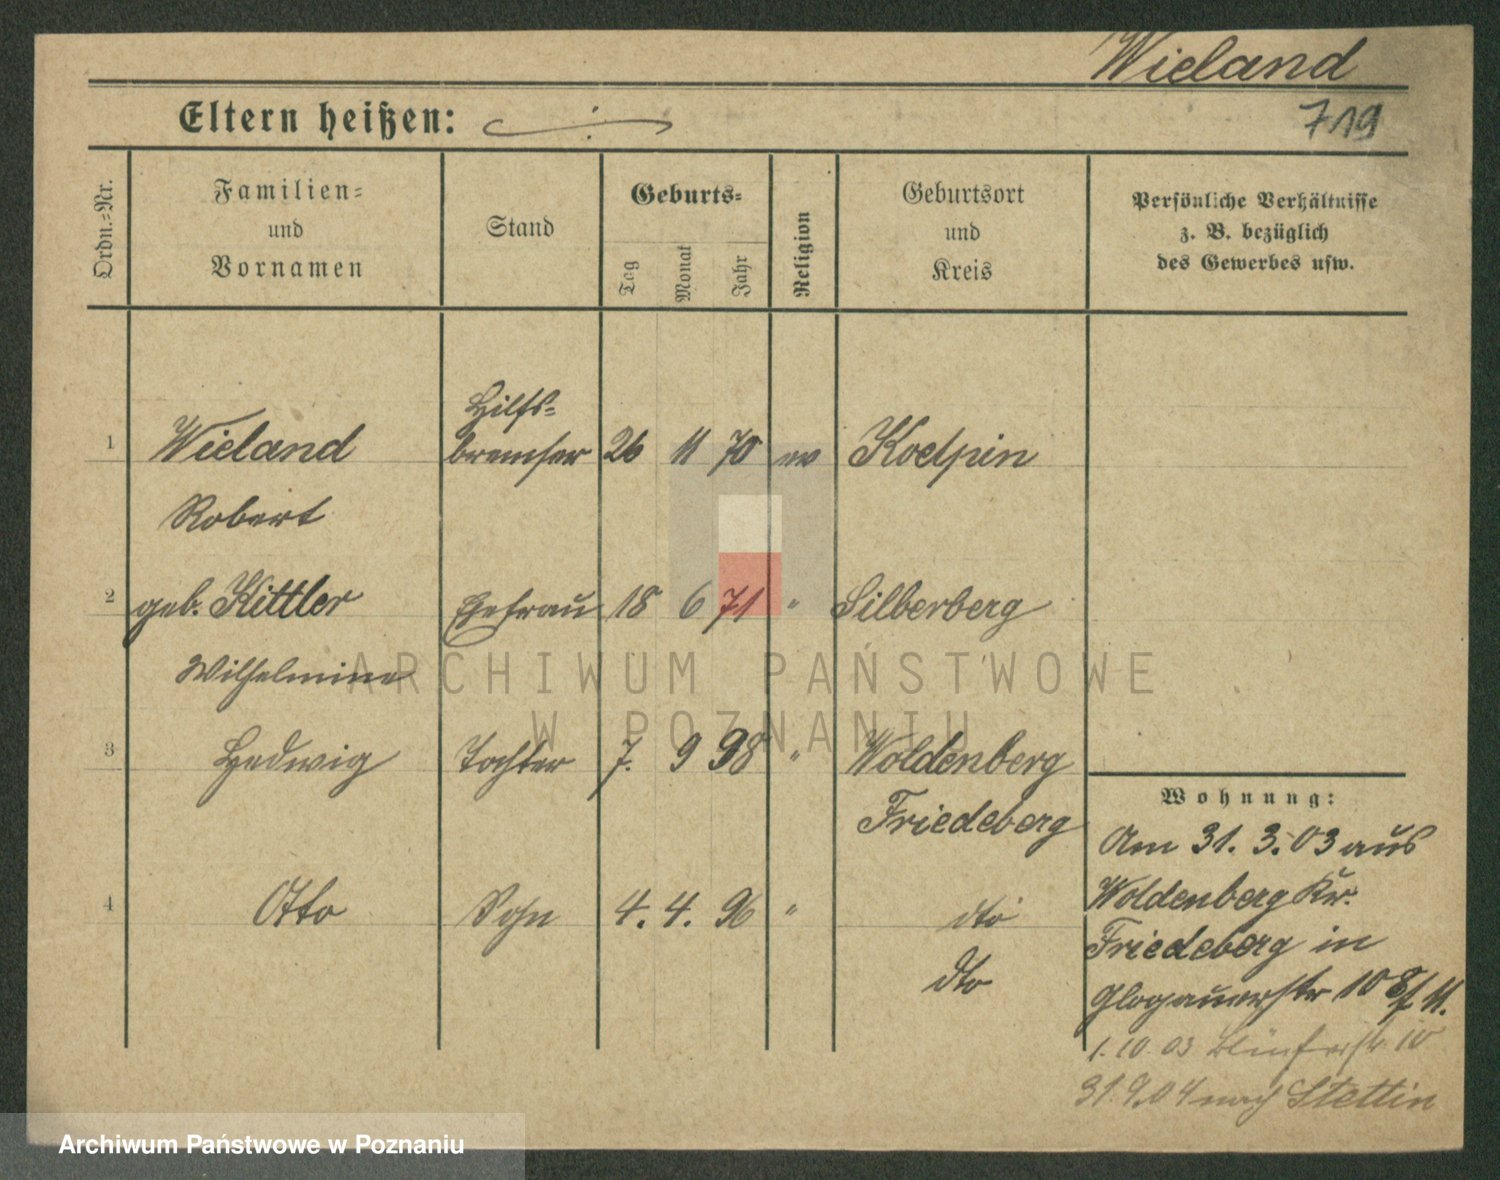 Wieland
719
Eltern heißen:
Ordn.=Nr.
Familien=
und
Vornamen
Stand
Geburts=
Tag
Monat
Jahr
Religion
Geburtsort
und
Kreis
Persönliche Verhältnisse
z. B. bezüglich
des Gewerbes usw.
Hilfs=
1 Wieland bremser 26 11 70 ev Koelpin
Robert
2 geb. Kittler Ehefrau 18 6 71 " Silberberg
Wilhelmine
3 Hedwig Tochter 7. 9 98 " Woldenberg
Friedeberg
4 Otto Sohn 4. 4. 96 " dto
dto
Wohnung:
Am 31. 3. 03 aus
Woldenberg Kr.
Friedeberg in
Glogauerstr 108
1. 10 03
31.9.04 nach Stettin
ARCHIWUM PAŃSTWOWE
W POZNANIU
Archiwum Państwowe w Poznaniu